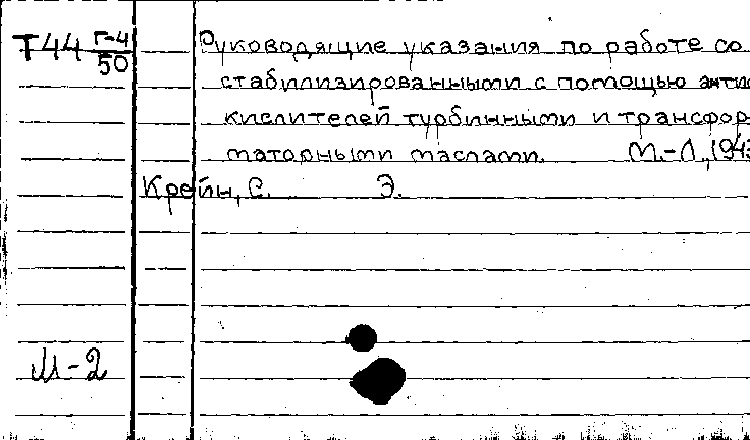 Т44 Г-4/50
Руководящие указания по работе со
стабилизированными с помощью анти
кислителей турбинными и трансфор
маторными маслами. М.-Л., 194
Крейн, С. Э.
М-2